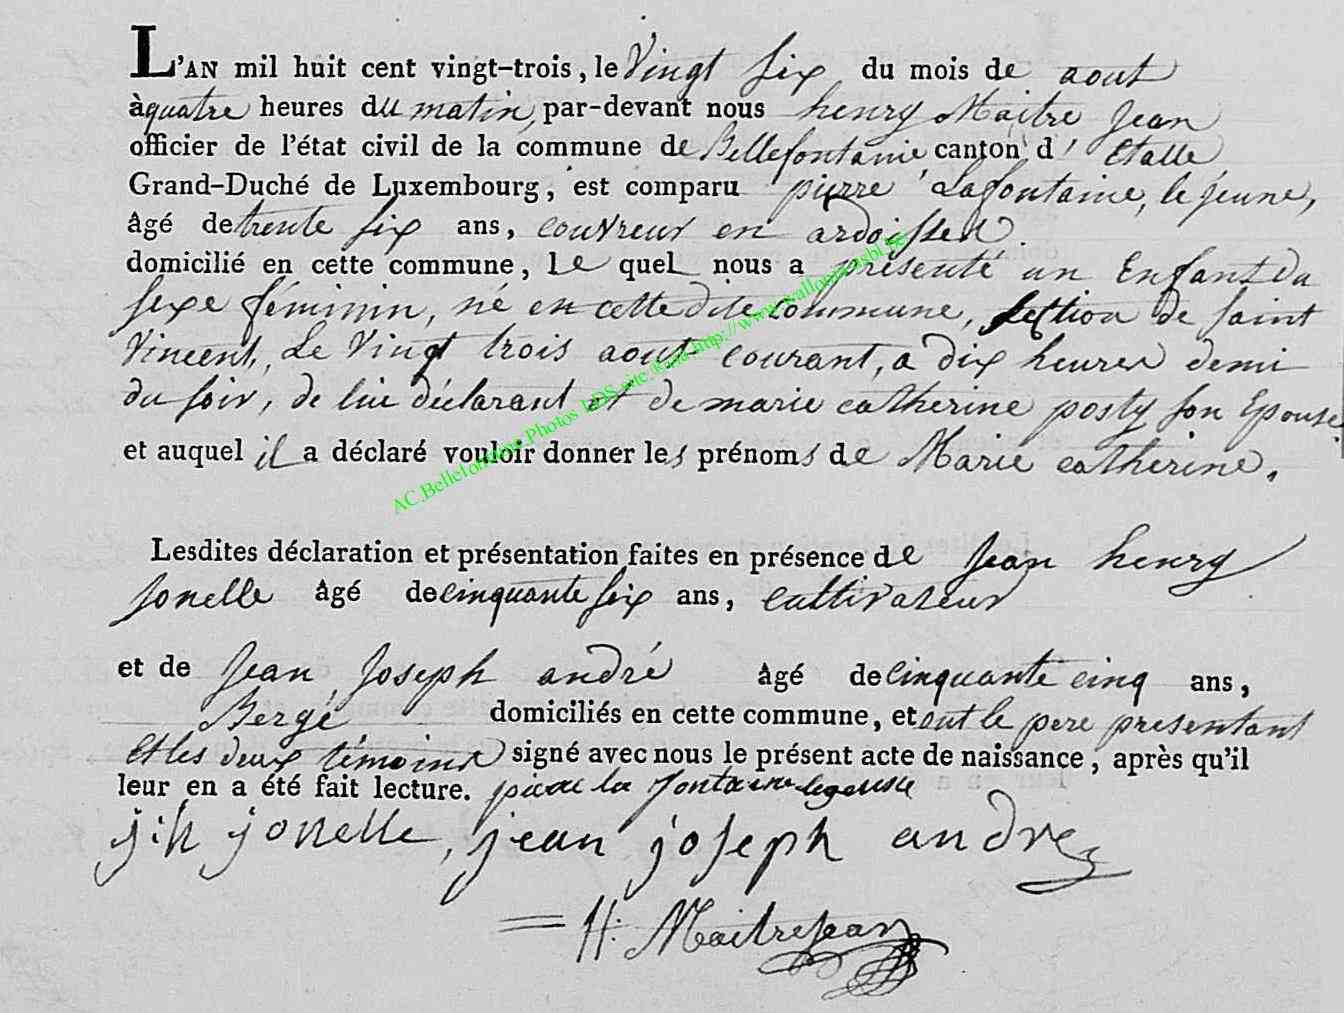 L'AN mil huit cent vingt-trois, le Vingt six du mois de aout
à quatre heures du matin, par-devant nous henry Maitre Jean
officier de l'état civil de la commune de Bellefontaine canton d' Etalle
Grand-Duché de Luxembourg, est comparu pierre Lafontaine, le jeune,
âgé de trente six ans, couvreur en ardoisses
domicilié en cette commune, le quel nous a présenté un Enfant du
sexe féminin, né en cette dite commune, section de saint
Vincent, Le Vingt trois aout courant, a dix heures demi
du soir, de lui déclarant et de marie catherine posty son Epouse
et auquel il a déclaré vouloir donner les prénoms de Marie catherine.
AC.Bellefontaine Photos LDS site:
Lesdites déclaration et présentation faites en présence de Jean henry
Jonelle âgé de cinquante six ans, cultivateur
et de Jean Joseph andré âgé de cinquante cinq ans,
Bergé domiciliés en cette commune, et ont le pere presentant
Et les deux témoins signé avec nous le présent acte de naissance, après qu'il
leur en a été fait lecture. piere la fontaine lejeune
j:h jonelle, jean joseph andre
H: Maitrejean